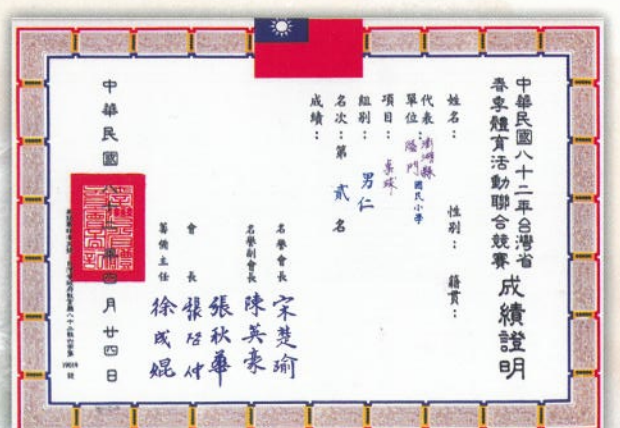 中華民國八十二年台灣省
春季體育活動聯合競賽 成績證明
姓名： 性別： 籍貫：
代表單位：澎湖縣 隘門 國民小學
項目：桌球
組別：男仁
名次：第 貳 名
成績：
名譽會長 宋楚瑜
名譽副會長 陳英豪
張秋華
會長
籌備主任 徐成焜
中華民國八十二年四月廿四日